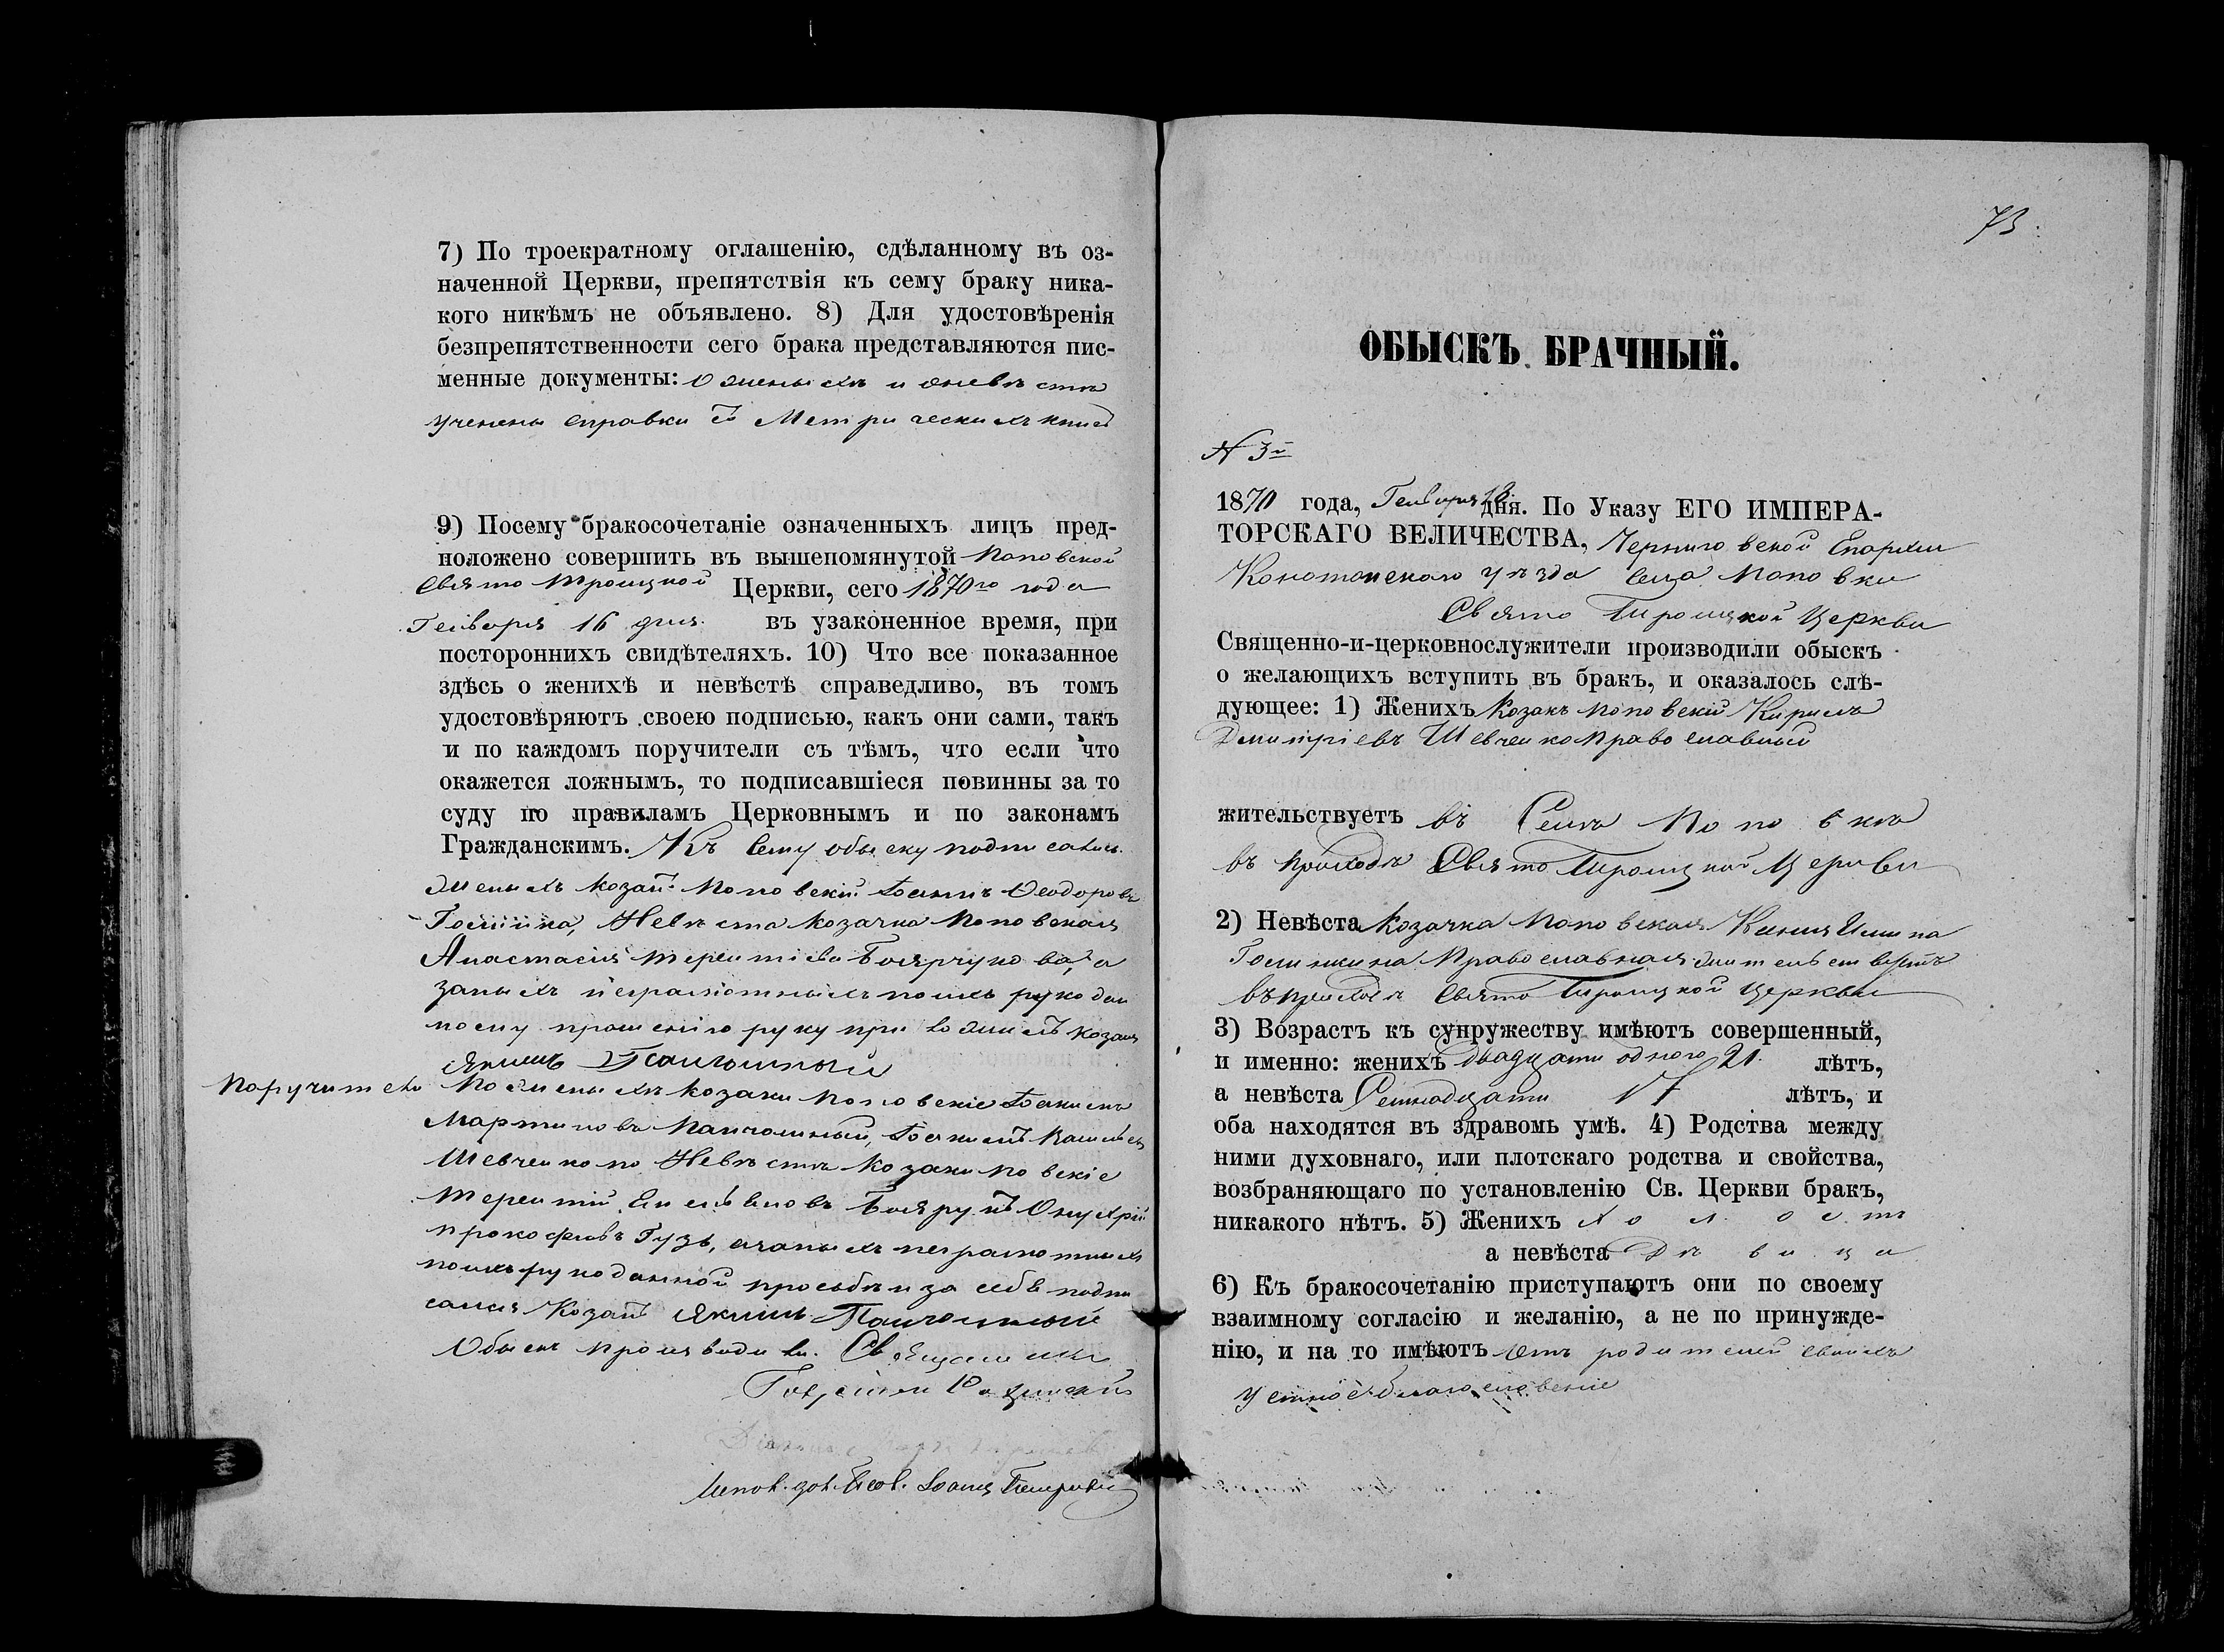 7) По троекратному оглашенію, сдѣланному въ оз-
наченной Церкви, препятствія къ сему браку ника-
кого никѣмъ не объявлено. 8) Для удостовѣренія
безпрепятственности сего брака представляются пис-
менные документы: О женихѣ и
учинены справки Метрическихъ книгъ
9) Посему бракосочетаніе означенныхъ лицъ пред-
положено совершить въ вышепомянутой Поповской
Свято Троицкой Церкви, сего 1870го года
Генваря 16 дня. въ узаконенное время, при
постороннихъ свидѣтеляхъ. 10) Что все показанное
здѣсь о женихѣ и невѣстѣ справедливо, въ томъ
удостовѣряютъ своею подписью, какъ они сами, такъ
и по каждомъ поручители съ тѣмъ, что если что
окажется ложнымъ, то подписавшіеся повинны за то
суду по правиламъ Церковнымъ и по законамъ
Гражданскимъ. Къ сему обыску подписались.
Женихъ козакъ Поповскій Ѳеодоровъ
Невѣста козачка Поповская
Анастасія Терентіева а
за нихъ неграмотныхъ по ихъ рукодан
ному прошенію руку приложилъ козакъ
Якимъ
Поручители По женихѣ козаки Поповскіе Іоакимъ
Мартиновъ Іоакимъ
Шевченко по Невѣстѣ козаки
Терентій Онуфрій
Прокофіевъ Гузь, а за нихъ неграмотныхъ
по ихъ рукоданной просьбѣ и за себе подпи
сался Козакъ Якимъ
Обыскъ производили. Священникъ
73
ОБЫСКЪ БРАЧНЫЙ.
N 3й
1870 года, Генваря дня. По Указу ЕГО ИМПЕРА-
ТОРСКАГО ВЕЛИЧЕСТВА, Черниговской Епархіи
Конотопскаго уѣзда Села Поповки
Свято Троицкой Церкви
Священно-и-церковнослужители производили обыскъ
о желающихъ вступить въ бракъ, и оказалось слѣ-
дующее: 1) Женихъ Козакъ Поповскій Кирилъ
Димитріевъ Шевченко Православный
жительствуетъ въ Селѣ Поповкѣ
въ приходѣ Свято Троицкой Церкви
2) Невѣста Козачка Поповская
Православная жительствуетъ
въ приходѣ Свято Троицкой Церкви
3) Возрастъ къ супружеству имѣютъ совершенный,
и именно: женихъ двадцати одного 21. лѣтъ,
а невѣста Семнадцати 17 лѣтъ, и
оба находятся въ здравомъ умѣ. 4) Родства между
ними духовнаго, или плотскаго родства и свойства,
возбраняющаго по установленію Св. Церкви бракъ,
никакого нѣтъ. 5) Женихъ холостъ
а невѣста Дѣвица
6) Къ бракосочетанію приступаютъ они по своему
взаимному согласію и желанію, а не по принужде-
нію, и на то имѣютъ отъ родителей своихъ
устное благословеніе